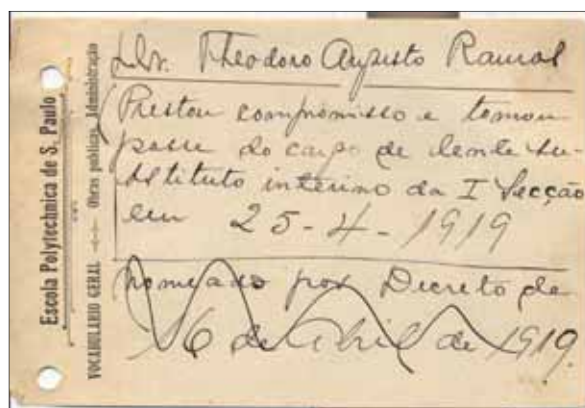 Escola Polytechnica de S. Paulo
VOCABULARIO GERAL Obras publicas, Administração
Dr. Theodoro Augusto Ramos
Prestou compromisso e tomou
posse do cargo de lente su-
bstituto interino da I Secção
em 25-4-1919
nomeado por Decreto de
16 de Abril de 1919.